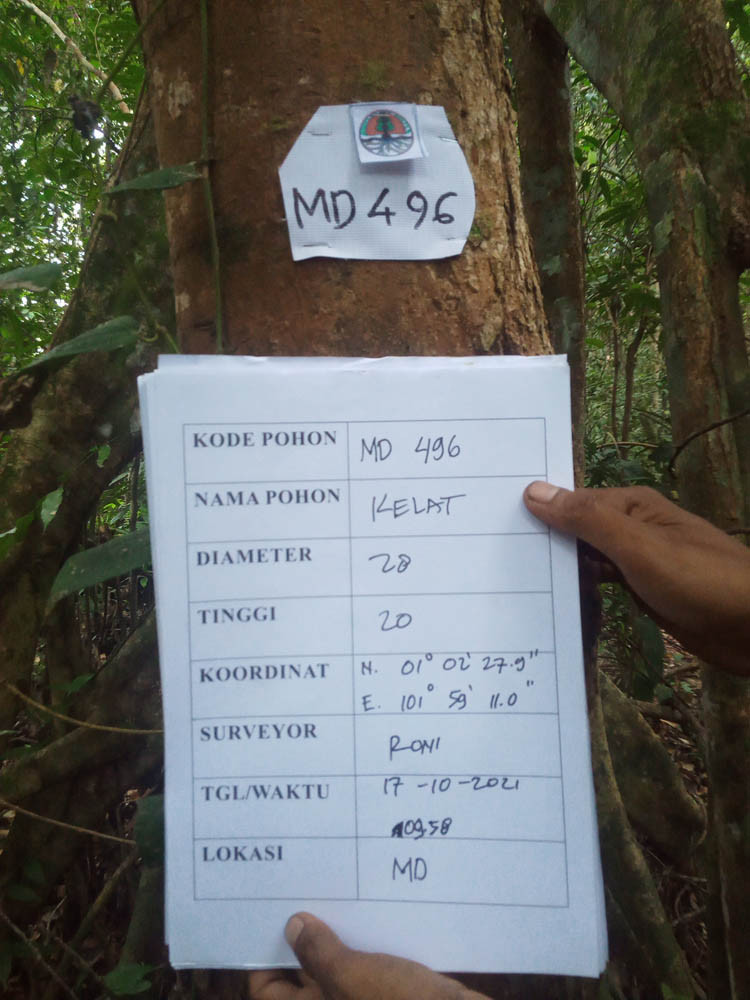 MD 496
KODE POHON MD 496
NAMA POHON KELAT
DIAMETER 28
TINGGI 20
KOORDINAT N. 01° 02' 27.9"
E. 101° 59' 11.0"
SURVEYOR RONI
TGL/WAKTU 17-10-2021
0958
LOKASI MD